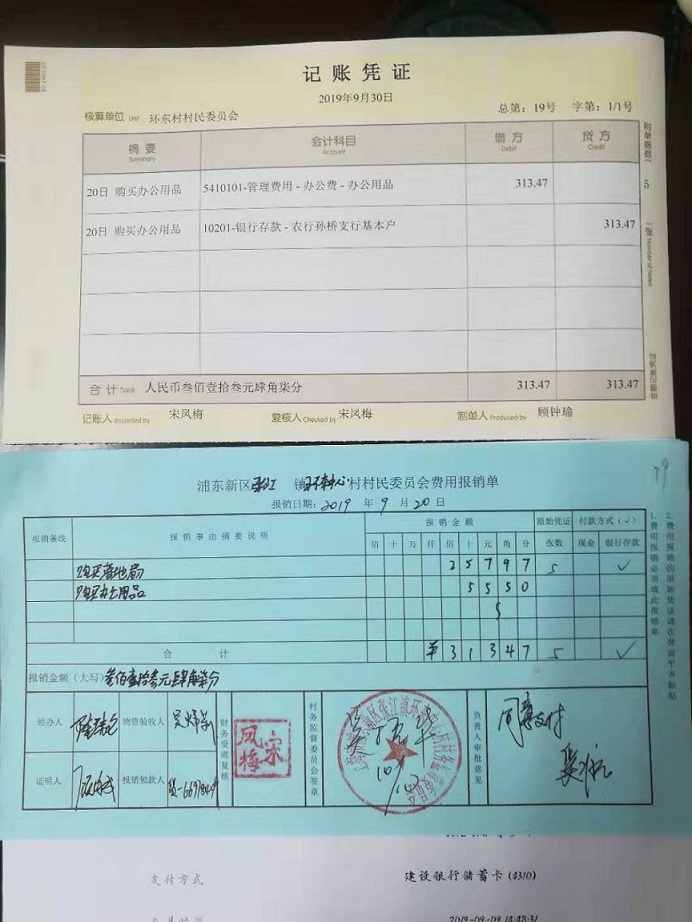 记账凭证
2019年9月30日
核算单位 Unit 环东村村民委员会
总第：19号 字第：1/1号
摘要 会计科目 借方 贷方
Summary Account Debit Credit
附单据数
5
张 Number of Notes
20日 购买办公用品 5410101-管理费用 - 办公费 - 办公用品 313.47
20日 购买办公用品 10201-银行存款 - 农行孙桥支行基本户 313.47
合计 Total 人民币叁佰壹拾叁元肆角柒分 313.47 313.47
记账人 Recorded by 宋凤梅 复核人 Checked by 宋凤梅 制单人 Produced by 顾钟瑜
浦东新区 张江 镇 环东中心 村村民委员会费用报销单
报销日期：2019 年 9 月 20 日
报销条线 报销事由摘要说明 报销金额 原始凭证 付款方式（√）
佰 十 万 仟 佰 十 元 角 分 张数 现金 银行存款
购买落地扇 2 5 7 9 7 5 √
购买办公用品 5 5 5 0
合计 ¥ 3 1 3 4 7 5 √
报销金额（大写） 叁佰壹拾叁元肆角柒分
经办人 物资验收人 财务受理复核 宋凤梅 村务监督委员会签章 负责人审批意见 同意支付
证明人 报销领款人
1、费用报销必须填此报销单
2、费用报销的原始凭证请在背面平齐粘贴
支付方式 建设银行储蓄卡（8310）
2019-09-09 14:48:31